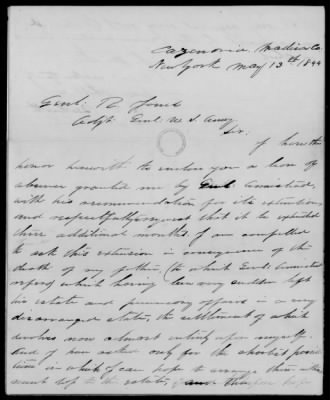 Cazenovia, Madison Co
New York May 13th 1844
Genl. R Jones
Adjt. Genl U S Army
Sir.
I have the
honor herewith to enclose you a leave of
absence granted me by Genl Armistead,
with his recommendation for its extension,
and respectfully request that it be extended
three additional months. I am compelled
to ask this extension in consequence of the
death of my father, (to which Genl Armistead
refers) which having been very sudden left
his estate and pecuniary affairs in a very
disarranged state, the settlement of which
devolves now almost entirely upon myself.
And I have asked only for the shortest possible
time in which I can hope to arrange them without
loss to the estate, I therefore hope